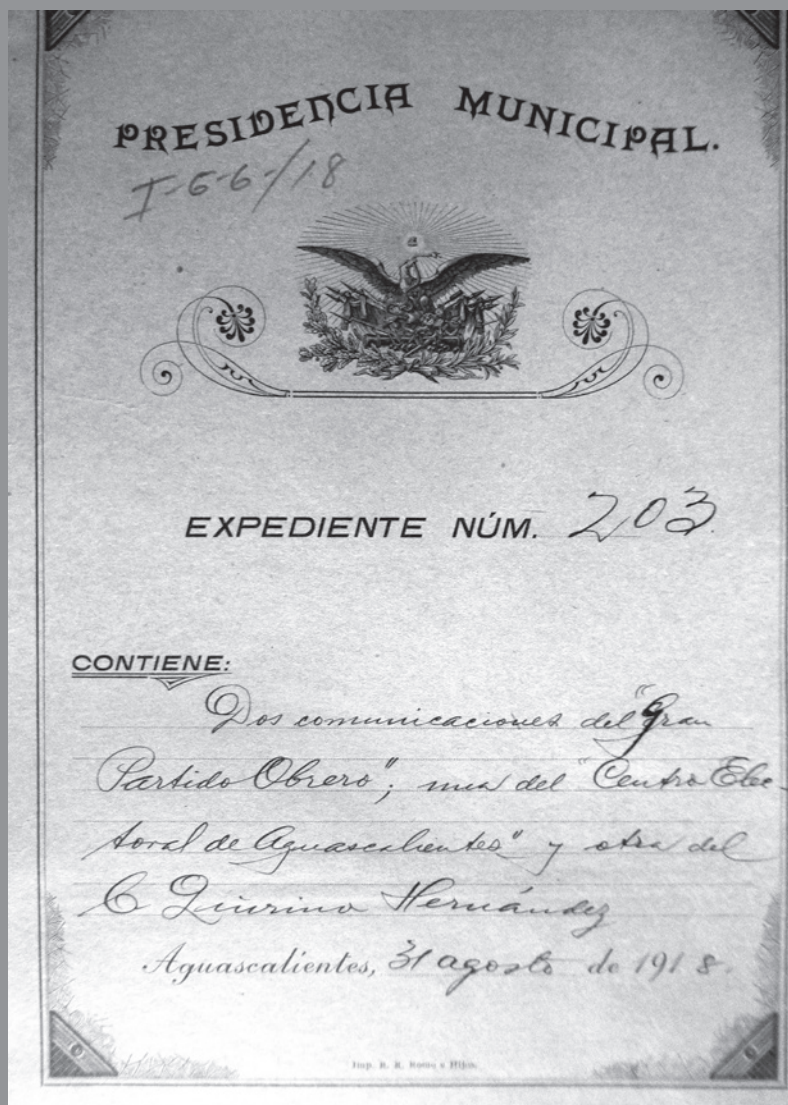 PRESIDENCIA MUNICIPAL.
I-6-6-/18
EXPEDIENTE NÚM. 203.
CONTIENE:
Dos comunicaciones del "Gran
Partido Obrero"; una del "Centro Elec-
toral de Aguascalientes" y otra del
C Quirino Hernández
Aguascalientes, 31 agosto de 1918.
Imp. R. R. Romo e Hijos.